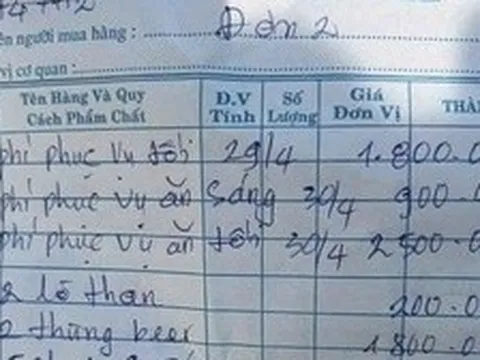 ên người mua hàng : Đơn 2
vị cơ quan :
Tên Hàng Và Quy Cách Phẩm Chất Đ.V Tính Số Lượng Giá Đơn Vị THÀ
phí phục vụ tối 29/4 1.800.0
phí phục vụ ăn sáng 30/4 900.0
phí phục vụ ăn tối 30/4 2 500.0
2 lò than 200.0
thùng beer 1 800.0